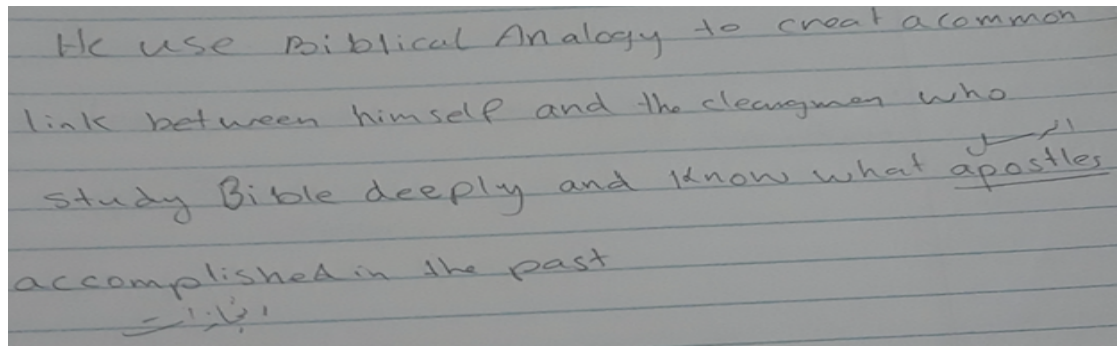 He use Biblical Analogy to creat a common
link between himself and the cleargmen who
الرسل
study Bible deeply and know what apostles
accomplished in the past